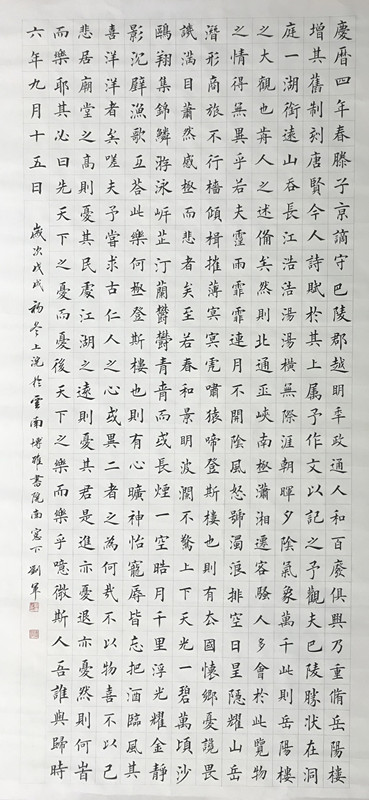 慶曆四年春滕子京謫守巴陵郡越明年政通人和百廢俱興乃重脩岳陽樓
增其舊制刻唐賢今人詩賦於其上属予作文以記之予觀夫巴陵勝狀在洞
庭一湖銜遠山吞長江浩浩湯湯橫無際涯朝暉夕陰氣象萬千此則岳陽樓
之大觀也前人之述備矣然則北通巫峽南極瀟湘遷客騷人多會於此覽物
之情得無異乎若夫霪雨霏霏連月不開陰風怒號濁浪排空日星隱耀山岳
潛形商旅不行檣傾楫摧薄冥冥虎嘯猿啼登斯樓也則有去國懷鄉憂讒畏
譏滿目蕭然感極而悲者矣至若春和景明波瀾不驚上下天光一碧萬頃沙
鷗翔集錦鱗游泳岸芷汀蘭鬱鬱青青而或長煙一空皓月千里浮光耀金靜
影沉璧漁歌互答此樂何極登斯樓也則有心曠神怡寵辱皆忘把酒臨風其
喜洋洋者矣嗟夫予嘗求古仁人之心或異二者之為何哉不以物喜不以己
悲居廟堂之高則憂其民處江湖之遠則憂其君是進亦憂退亦憂然則何旹
而樂耶其必曰先天下之憂而憂後天下之樂而樂乎噫微斯人吾誰與歸時
六年九月十五日
歲次戊戌初冬上浣於雲南博雅書院南窗下劉軍